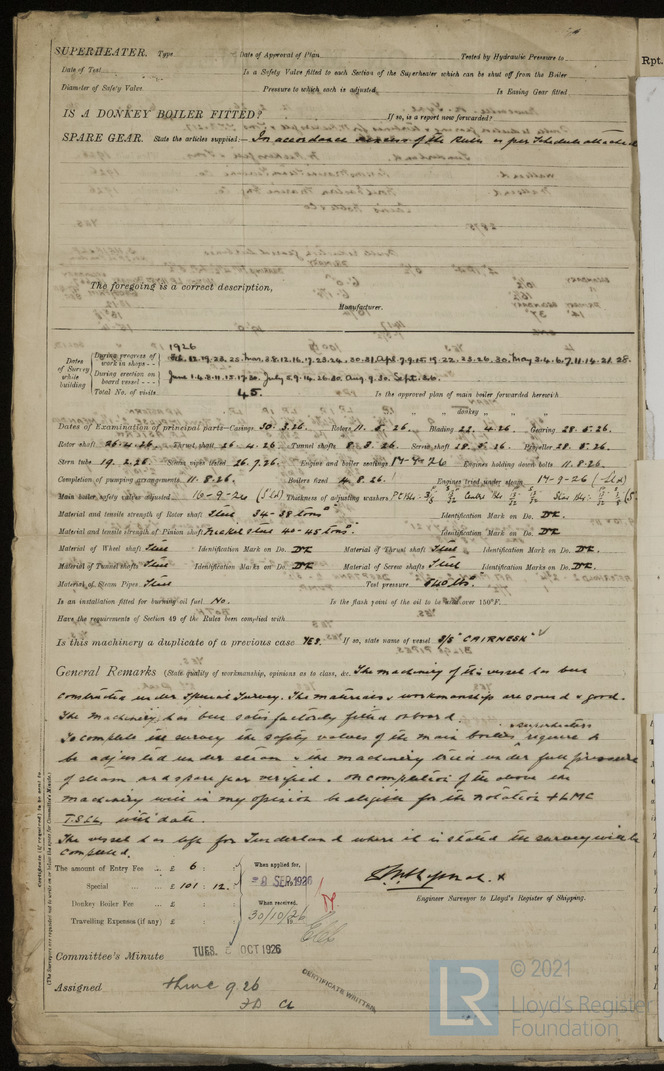 SUPERHEATER. Type Date of Approval of Plan Tested by Hydraulic Pressure to
Rpt.
Date of Test Is a Safety Valve fitted to each Section of the Superheater which can be shut off from the Boiler
Diameter of Safety Valve Pressure to which each is adjusted Is Easing Gear fitted
IS A DONKEY BOILER FITTED? If so, is a report now forwarded?
SPARE GEAR. State the articles supplied:— In accordance of the Rules as per Schedule attached
The foregoing is a correct description,
Manufacturer.
1926
Dates of Survey while building
During progress of work in shops - - Feb. 12. 19. 23. 25. Mar. 3. 8. 12. 16. 17. 23. 24. 30. 31. Apl. 7. 9. 15. 19. 22. 23. 26. 30. May 3. 4. 6. 7. 11. 14. 21. 28.
During erection on board vessel - - - June 1. 4. 8. 11. 15. 17. 30. July 5. 9. 14. 26. 30. Aug. 9. 30. Sept. 26.
Total No. of visits 45. Is the approved plan of main boiler forwarded herewith
" " " donkey " " "
Dates of Examination of principal parts—Casings 30. 3. 26. Rotors 11. 5. 26. Blading 22. 4. 26. Gearing 28. 5. 26.
Rotor shaft 26. 4. 26 Thrust shaft 26. 4. 26. Tunnel shafts 8. 5. 26. Screw shaft 28. 5. 26. Propeller 28. 5. 26.
Stern tube 19. 2. 26. Steam pipes tested 26. 7. 26. Engine and boiler seatings 14-9-26 Engines holding down bolts 11. 8. 26.
Completion of pumping arrangements 11. 8. 26. Boilers fixed 4. 8. 26. Engines tried under steam 17-9-26 (Sld)
Main boiler safety valves adjusted 16-9-26 (Sld) Thickness of adjusting washers
Material and tensile strength of Rotor shaft Steel 34-38 tons Identification Mark on Do.
Material and tensile strength of Pinion shaft Nickel steel 40-45 tons Identification Mark on Do.
Material of Wheel shaft Steel Identification Mark on Do. Material of Thrust shaft Steel Identification Mark on Do.
Material of Tunnel shafts Steel Identification Marks on Do. Material of Screw shafts Steel Identification Marks on Do.
Material of Steam Pipes Steel Test pressure 640 lbs
Is an installation fitted for burning oil fuel No. Is the flash point of the oil to be used over 150°F.
Have the requirements of Section 49 of the Rules been complied with
Is this machinery a duplicate of a previous case YES. If so, state name of vessel S/S "CAIRNESK"
General Remarks (State quality of workmanship, opinions as to class, &c. The machinery of this vessel has been
constructed under Special Survey. The materials & workmanship are sound & good.
The machinery has been satisfactorily fitted onboard.
& superheaters
To complete the survey the safety valves of the main boilers require to
be adjusted under steam & the machinery tried under full pressure
of steam and spare gear verified. On completion of the above the
machinery will in my opinion be eligible for the notation + LMC
T.S.CL. with date.
The vessel has left for Sunderland where it is stated the survey will be
completed.
Certificate (if required) to be sent to
(The Surveyors are requested not to write on or below the space for Committee's Minute.)
The amount of Entry Fee ... £ 6 : :
Special ... £ 101 : 12 :
Donkey Boiler Fee ... £ : :
Travelling Expenses (if any) £ : :
When applied for,
28 SEP 1926
When received,
30/10/26
Engineer Surveyor to Lloyd's Register of Shipping.
Committee's Minute TUES. OCT 1926
Assigned + LMC 9 26
FD CL
CERTIFICATE WRITTEN
LR
© 2021
Lloyd's Register
Foundation